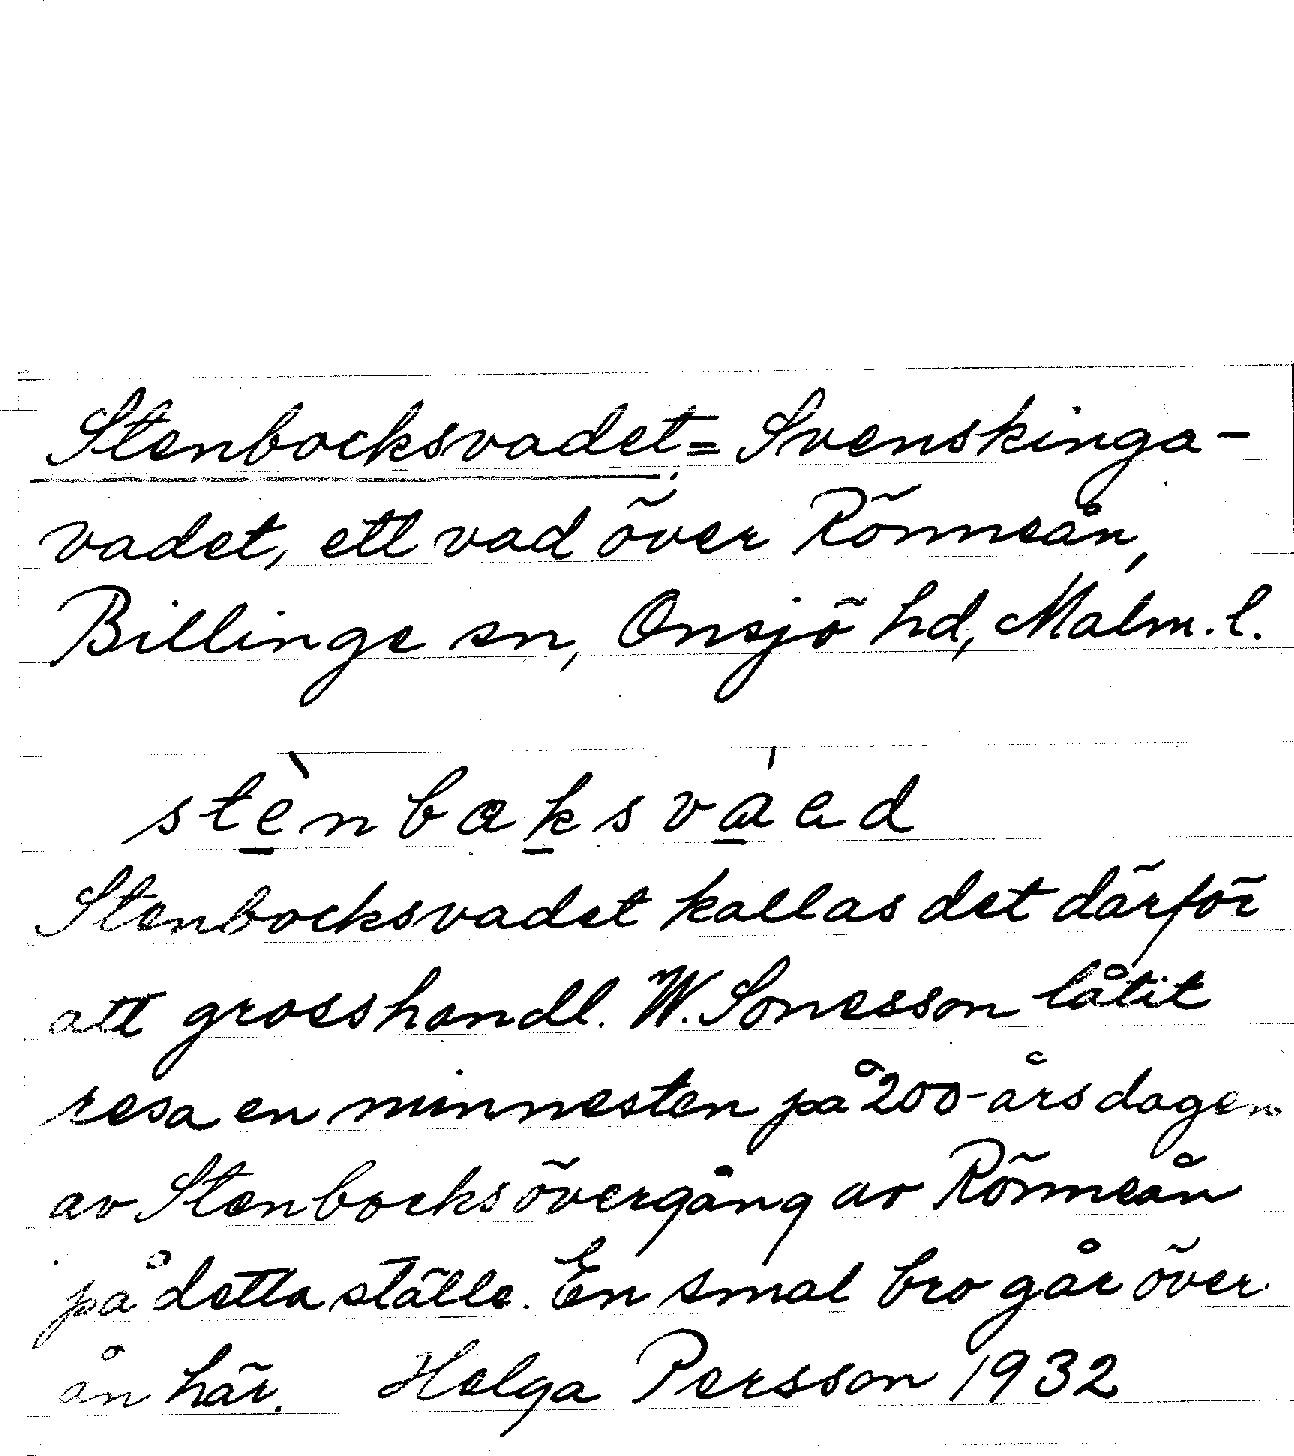 Stenbocksvadet = Svenskinga-
vadet, ett vad över Rönneån,
Billinge sn, Onsjö hd, Malm. l.
stènbɷksvàɑd
Stenbocksvadet kallas det därför
att grosshandl. W. Sonesson låtit
resa en minnesten på 200-årsdagen
av Stenbocks övergång av Rönneån
på detta ställe. En smal bro går över
ån här. Helga Persson 1932